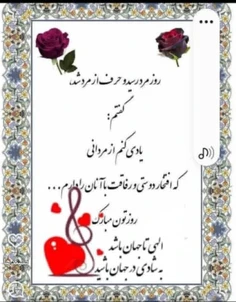 روز مرد رسید و حرف از مرد شد،
گفتم:
یادی کنم از مردانی
که افتخار دوستی و رفاقت با آنان را دارم...
روزتون مبارک
الهی تا جهان باشد
به شادی در جهان باشید